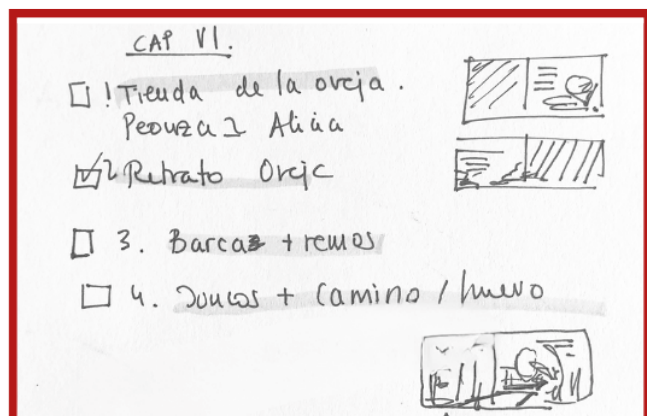 CAP VI.
! Tienda de la oveja.
Alicia
2 Retrato Oveja
3. Barca + remos
4. Juncos + Camino / huevo